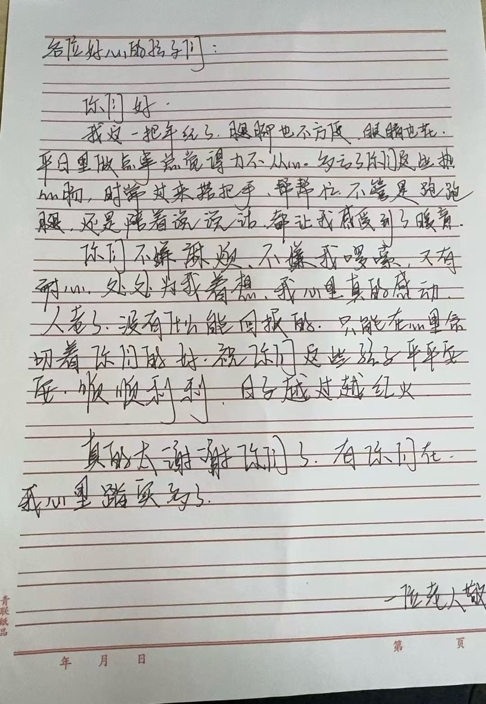 各位好心的孩子们：
你们好.
我这一把年纪了.腿脚也不方便.眼睛也花.
平日里做点事总觉得力不从心.多亏了你们这些热
心肠,时常过来搭把手.帮帮忙.不管是跑跑
腿、还是陪着说说话.都让我感受到了暖意.
你们不嫌麻烦、不嫌我啰嗦、又有
耐心、处处为我着想.我心里真的感动.
人老了.没有什么能回报的.只能在心里念
叨着你们的好.祝你们这些孩子平平安
安.顺顺利利.日子越过越红火
真的太谢谢你们了.有你们在.
我心里踏实多了.
一位老人敬
青联纸品
年 月 日 第 頁